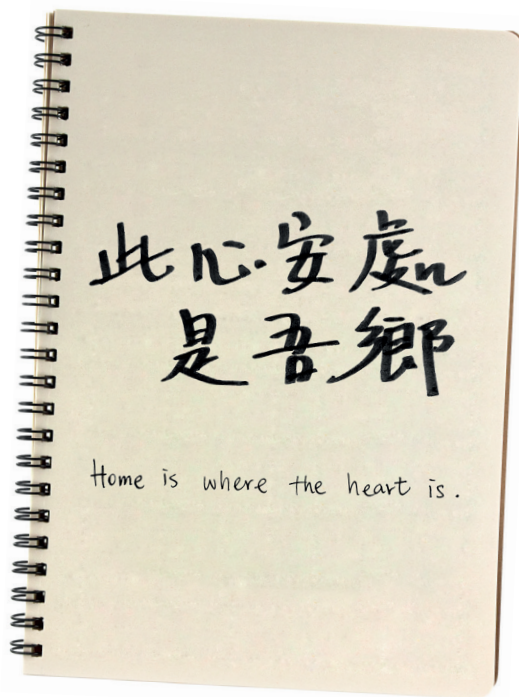 此心安處
是吾鄉
Home is where the heart is.